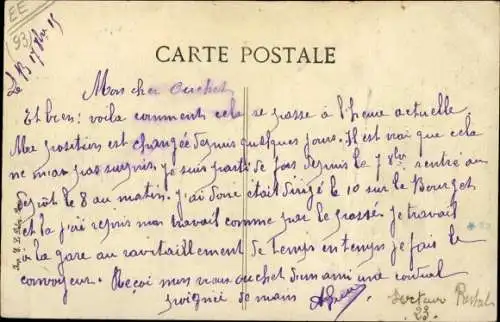 EE
(93)
Le B 17 8bre 15
CARTE POSTALE
Mon cher Ouchet
Et bien : voila comment cela se passe à l'heure actuelle
Ma position est changée depuis quelques jours. Il est vrai que cela
ne m'a pas surpris, je suis parti de depuis le 7 8bre rentré au
dépôt le 8 au matin. J'ai donc était dirigé le 10 sur le Bourget
et la j'ai repris mon travail comme par le passé je travail
à la gare au ravitaillement de temps en temps je fais le
convoyeur. Reçoi mon vieux ouchet d'un ami une cordial
poignée de main
secteur Postal
23.